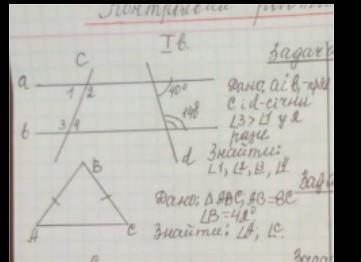 Контрольна
І в.
Задача
c
a
1 2
40°
b
3 4
148
d
Дано: a і b-пря
c і d-січні
∠3 > ∠1 у 2
рази
Знайти:
∠1, ∠2, ∠3, ∠4
Задача
B
A
C
Дано: △ABC, AB=BC
∠B=42°
Знайти: ∠A, ∠C.
Задача